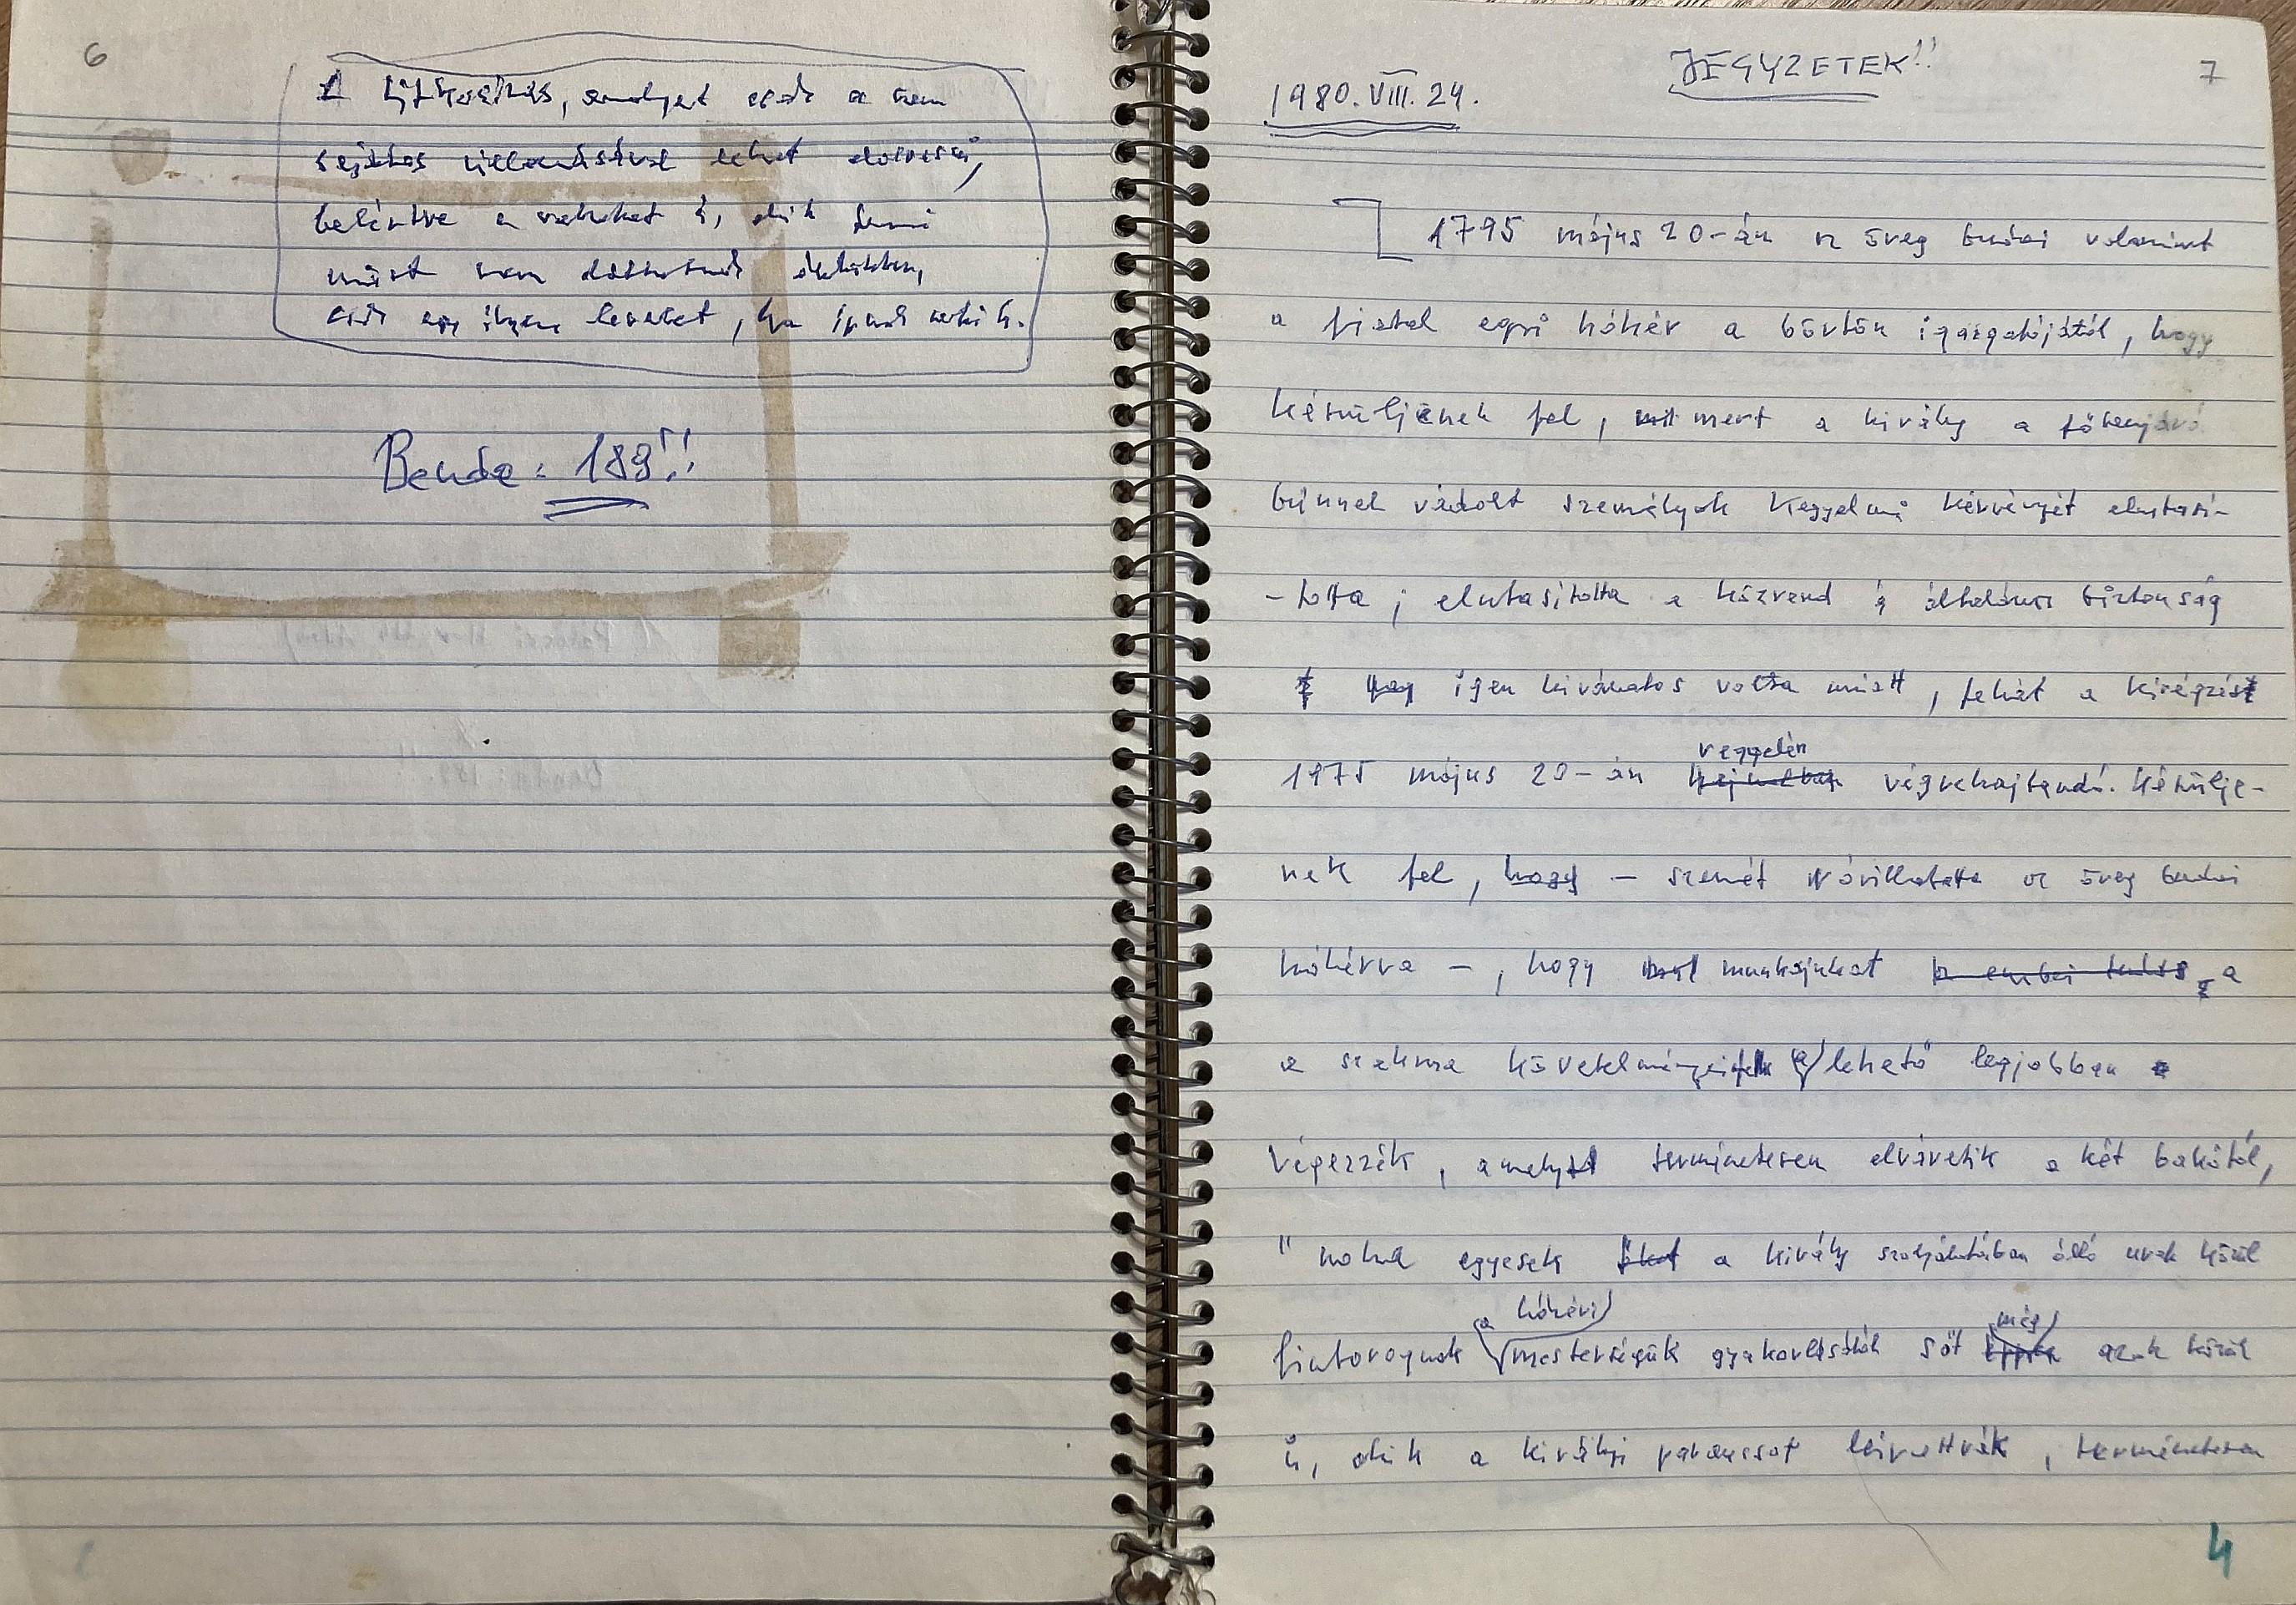 6
A titkosírás, amelyet csak a szem
sajátos villanásával lehet elolvasni,
beleértve a vakokat is, akik semmi
mást nem láthatnak életükben,
csak egy ilyen levelet, ha írnak nekik.
Benda: 189!!
7
JEGYZETEK!!
1980. VIII. 24.
1795 május 20-án az öreg budai valamint
a fiatal egri hóhér a börtön igazgatójától, hogy
készüljenek fel, mert a király a főbenjáró
bűnnel vádolt személyek kegyelmi kérvényét elutasí-
-totta; elutasította a közrend és általános biztonság
igen kívánatos volta miatt, tehát a kivégzést
1975 május 20-án reggelén végrehajtandó. Készülje-
nek fel, hogy – szemét rávillantotta az öreg budai
hóhérra –, hogy munkájukat a
a szakma követelményei a lehető legjobban
végezzék, amelyet természetesen elvárnak a két bakótól,
noha egyesek őket a király szolgálatában álló urak közül
fintorognak a hóhéri mesterségük gyakorlásától sőt még azok közül
is, akik a királyi parancsot kézvették, természetesen
4